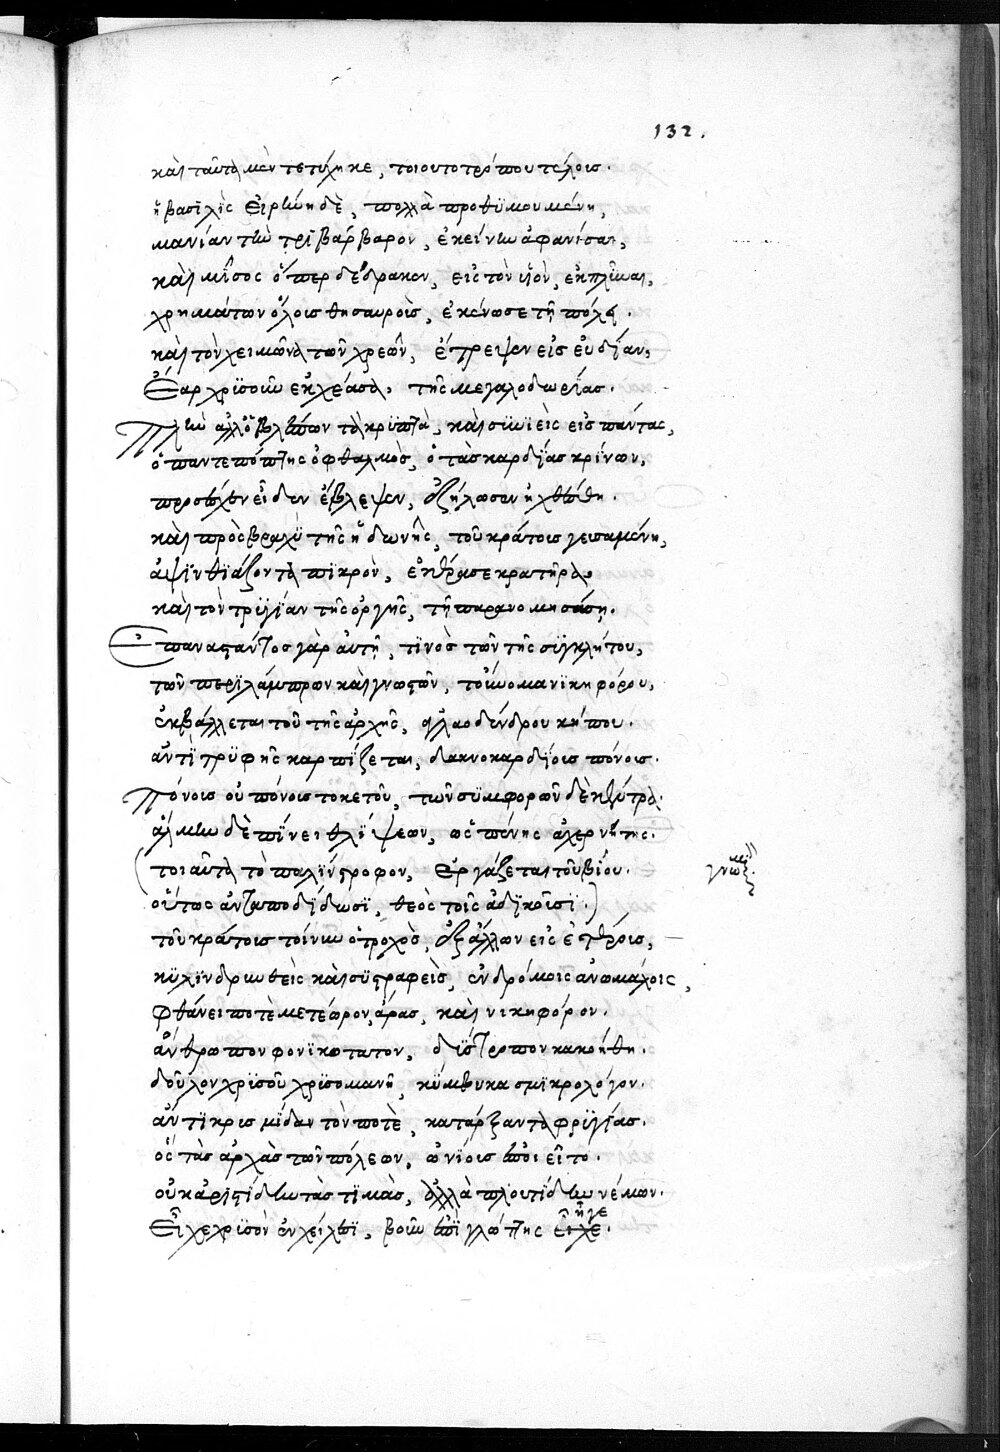 132.
καὶ ταῦτα μὲν τετύχηκε, τοιουτοτρόπου τέλους.
ἡ βασιλὶς Εἰρήνη δὲ, πολλὰ προθυμουμένη,
μανίαν τὴν τριβάρβαρον, ἐκείνου ἀφανίσαι,
καὶ μῖσος ὅπερ δέδρακεν, εἰς τὸν υἱὸν, ἐκπλῦναι,
χρημάτων ὅλους θησαυροὺς, ἐκένωσε τῇ πόλει.
καὶ τὸν χειμῶνα τῶν χρεῶν, ἔτρεψεν εἰς εὐδίαν,
Ἔαρ χρυσοῦν ἐκχέασα, τῆς μεγαλοδωρίας.
Πλὴν ἀλλ' ὁ βλέπων τὰ κρυπτὰ, καὶ συνιεὶς εἰς πάντας,
ὁ παντεπόπτης ὀφθαλμὸς, ὁ τὰς καρδίας κρίνων,
προσέσχεν εἶδεν ἔβλεψεν, ἐζήλωσεν ἠχθέσθη.
καὶ πρὸς βραχὺ τῆς ἡδονῆς, τοῦ κράτους γευσαμένη,
ἀψινθιάζοντα πικρὸν, ἐκέρασε κρατῆρα,
καὶ τὸν τρυγίαν τῆς ὀργῆς, τῇ παρανομησάσῃ.
Ἐπαναστάντος γὰρ αὐτῇ, τινὸς τῶν τῆς συγκλήτου,
τῶν περιλάμπρων καὶ γνωστῶν, τοὔνομα νικηφόρου,
ἐκβάλλεται τοῦ τῆς ἀρχῆς, ἀγλαοδένδρου κήπου.
ἀντὶ τρυφῆς καρπίζεται, δακνοκαρδίοις πόνοις.
Πόνοις οὐ πόνοις τοκετοῦ, τῶν συμφορῶν δὲ κέντρα.
ἅλμην δὲ πίνει θλίψεων, ὡς πένης ἀχερνήτης.
(τοιαῦτα τὸ παλίντροφον, ἐργάζεται τοῦ βίου.
οὕτως ἀνταποδίδωσι, θεὸς τοῖς ἀδικοῦσι.)
τοῦ κράτους τοίνυν ὁ τροχὸς, ἐξ ἄλλων εἰς ἑτέρους,
κυλινδρωθεὶς καὶ συστραφεὶς, ἐν δρόμοις ἀνωμάλοις,
φθάνει ποτὲ μετέωρον, ἄρας, καὶ νικηφόρον.
ἄνθρωπον φονικώτατον, δύστροπον κακοήθη.
δοῦλον χρυσοῦ χρυσομανῆ, κύμβικα σμικρολόγον.
ἄντικρις μίδαν τόν ποτὲ, κατάρξαντα φρυγίας.
ὃς τὰς ἀρχὰς τῶν πόλεων, ὠνίους ἐποιεῖτο.
οὐκ ἀριστίνδην τὰς τιμὰς, ἀλλὰ πλουτίνδην νέμων.
Εἶχε χρυσὸν ἐν χείλεσι, βοῦν ἐπὶ γλώττης εἶχε.
ἦγε